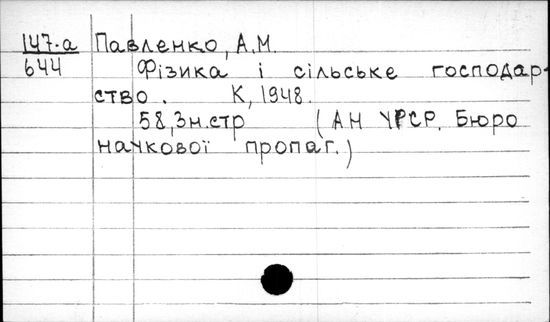 147-а Павленко, А.М.
644 Фізика і сільське господар-
ство. К, 1948.
58, 3н.стр (АН УРСР. Бюро
наукової пропаг.)